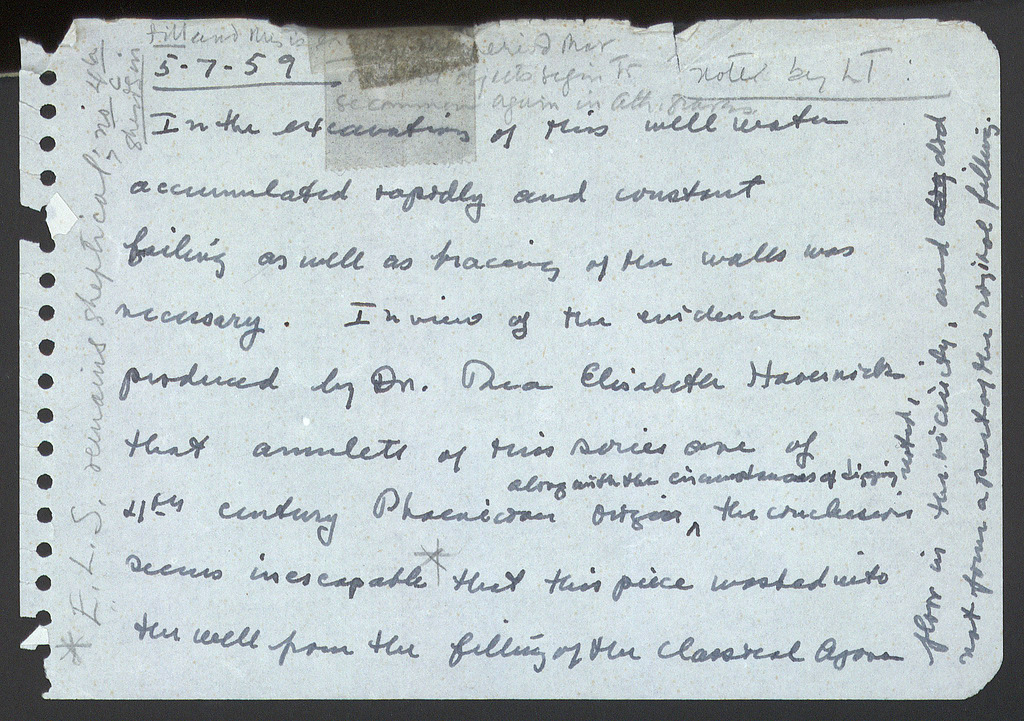 till and this is
5-7-59
objects begin to
become common again in Ath. graves
noted by LT.
In the excavation of this well water
accumulated rapidly and constant
bailing as well as bracing of the walls was
necessary. In view of the evidence
produced by Dr. Thea Elisabeth Haevernick
that amulets of this series are of
along with the circumstances of digging noted,
4th century Phoenician origin, ^ the conclusion
seems inescapable * that this piece washed into
the well from the filling of the Classical Agora
floor in the vicinity, and did
not form a part of the original filling.
* E.L.S. remains skeptical; no 4th